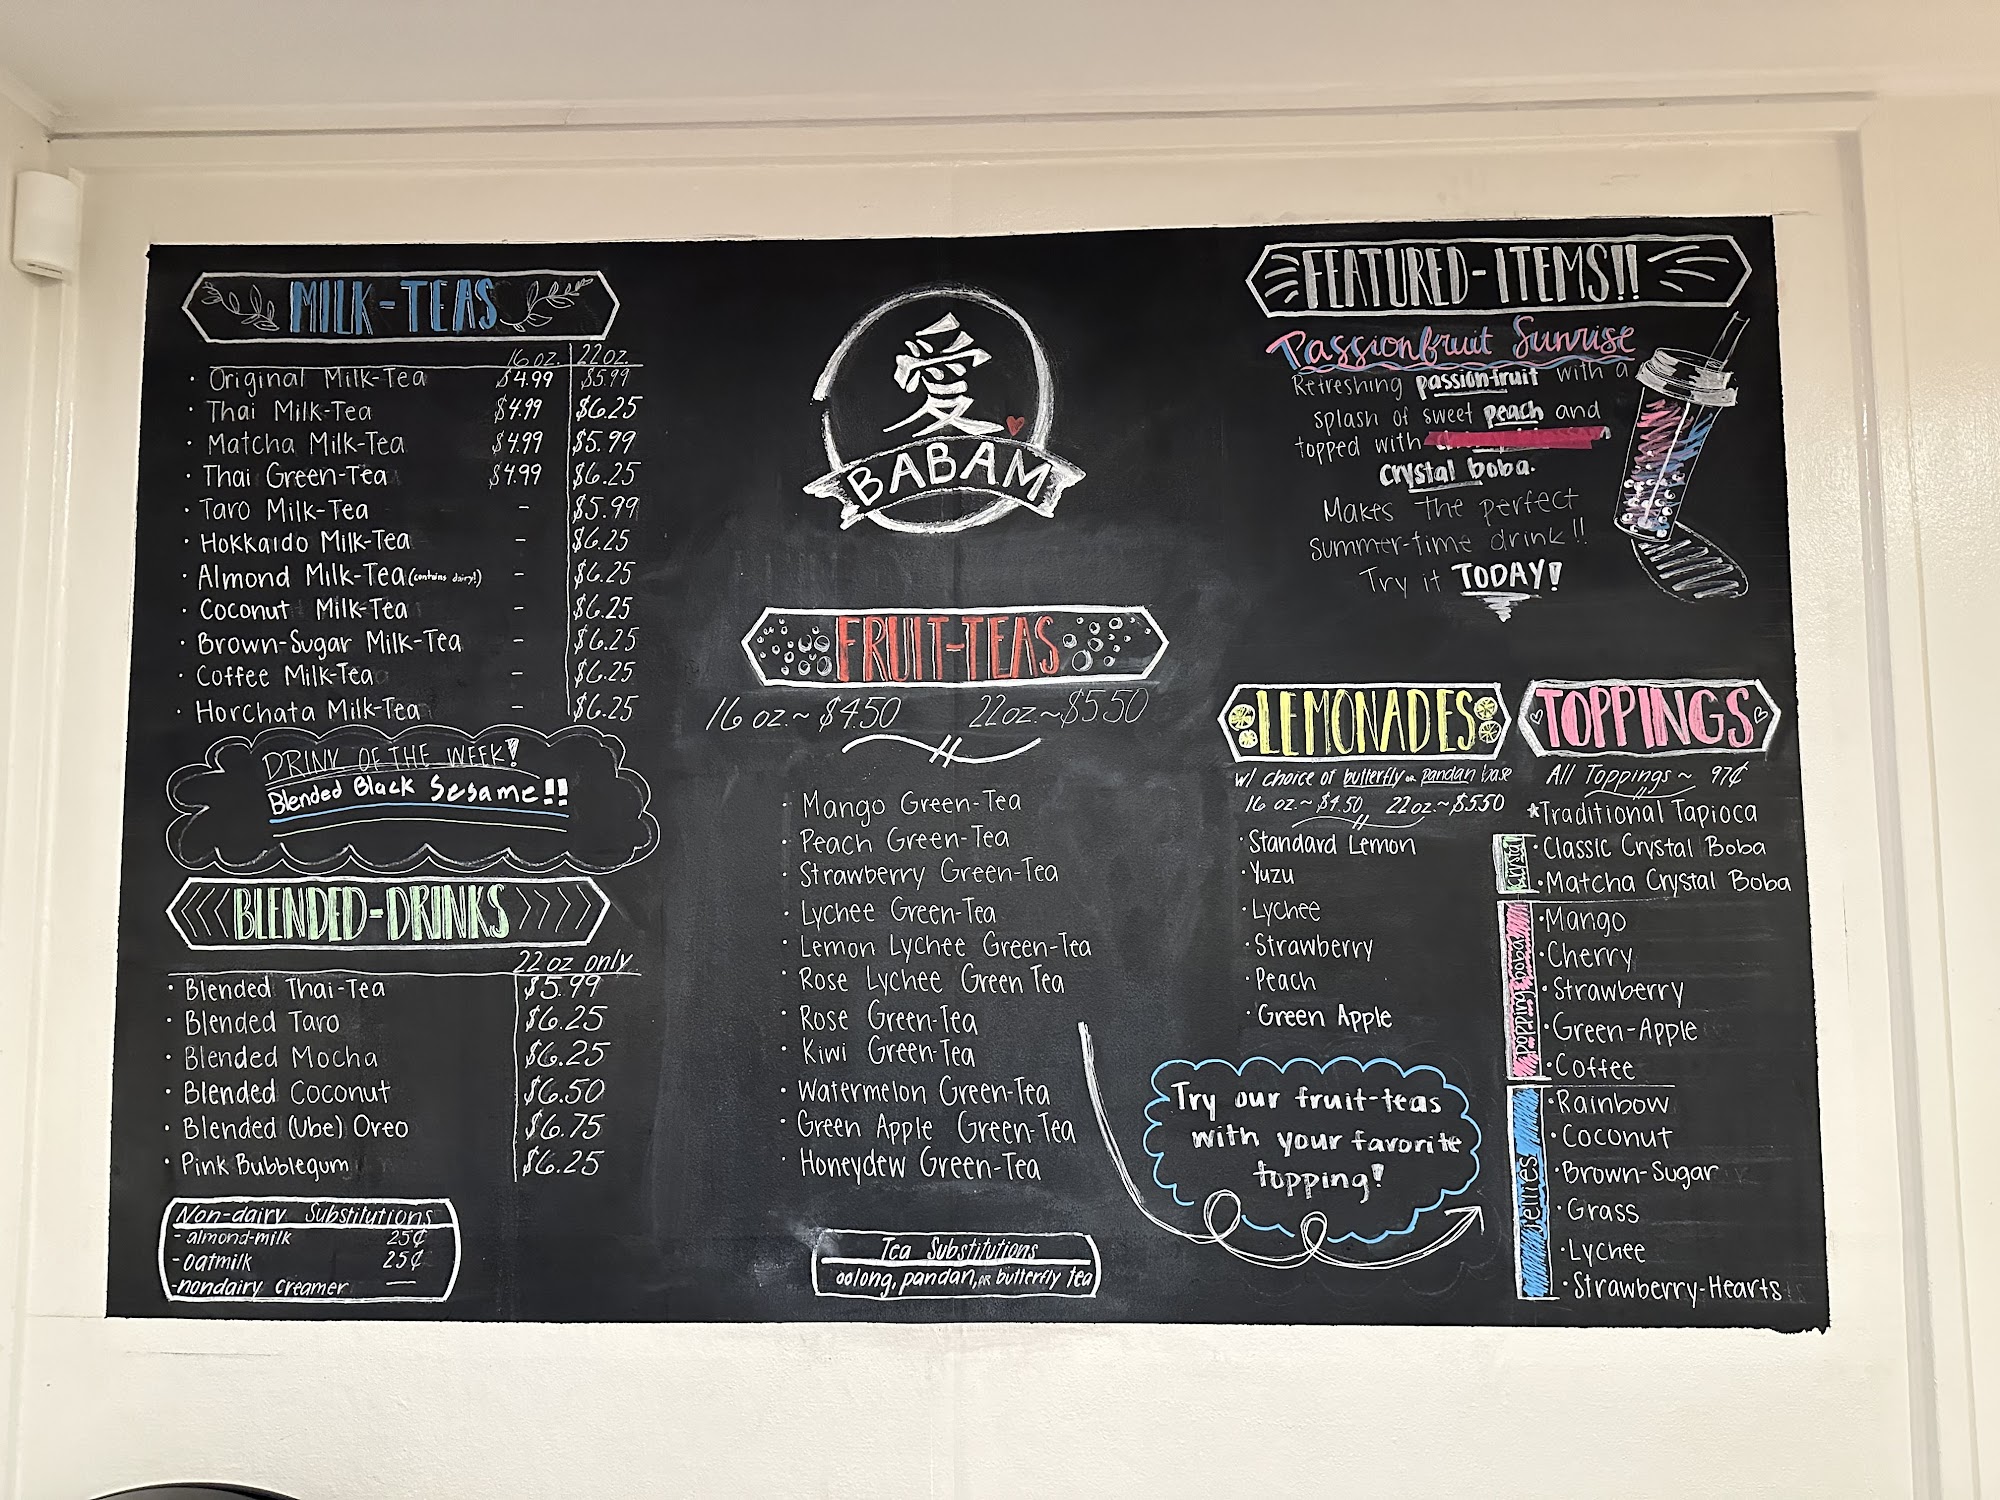 MILK-TEAS
16 oz. 22 oz.
· Original Milk-Tea $4.99 $5.99
· Thai Milk-Tea $4.99 $6.25
· Matcha Milk-Tea $4.99 $5.99
· Thai Green-Tea $4.99 $6.25
· Taro Milk-Tea - $5.99
· Hokkaido Milk-Tea - $6.25
· Almond Milk-Tea (contains dairy!) - $6.25
· Coconut Milk-Tea - $6.25
· Brown-Sugar Milk-Tea - $6.25
· Coffee Milk-Tea - $6.25
· Horchata Milk-Tea - $6.25
DRINK OF THE WEEK!
Blended Black Sesame!!
BLENDED-DRINKS
22 oz only
· Blended Thai-Tea $5.99
· Blended Taro $6.25
· Blended Mocha $6.25
· Blended Coconut $6.50
· Blended (Ube) Oreo $6.75
· Pink Bubblegum $6.25
Non-dairy Substitutions
- almond-milk 25¢
- oatmilk 25¢
- nondairy creamer —
愛
BABAM
FRUIT-TEAS
16 oz. ~ $4.50 22oz. ~ $5.50
· Mango Green-Tea
· Peach Green-Tea
· Strawberry Green-Tea
· Lychee Green-Tea
· Lemon Lychee Green-Tea
· Rose Lychee Green Tea
· Rose Green-Tea
· Kiwi Green-Tea
· Watermelon Green-Tea
· Green Apple Green-Tea
· Honeydew Green-Tea
Tea Substitutions
oolong, pandan, OR butterfly tea
FEATURED-ITEMS!!
Passionfruit Sunrise
Refreshing passionfruit with a
splash of sweet peach and
topped with
crystal boba.
Makes the perfect
summer-time drink!!
Try it TODAY!
LEMONADES
w/ choice of butterfly or pandan base
16 oz. ~ $4.50 22oz. ~ $5.50
· Standard Lemon
· Yuzu
· Lychee
· Strawberry
· Peach
· Green Apple
Try our fruit-teas
with your favorite
topping!
TOPPINGS
All Toppings ~ 97¢
*Traditional Tapioca
crystal
· Classic Crystal Boba
· Matcha Crystal Boba
popping boba
· Mango
· Cherry
· Strawberry
· Green-Apple
· Coffee
jellies
· Rainbow
· Coconut
· Brown-Sugar
· Grass
· Lychee
· Strawberry-Hearts